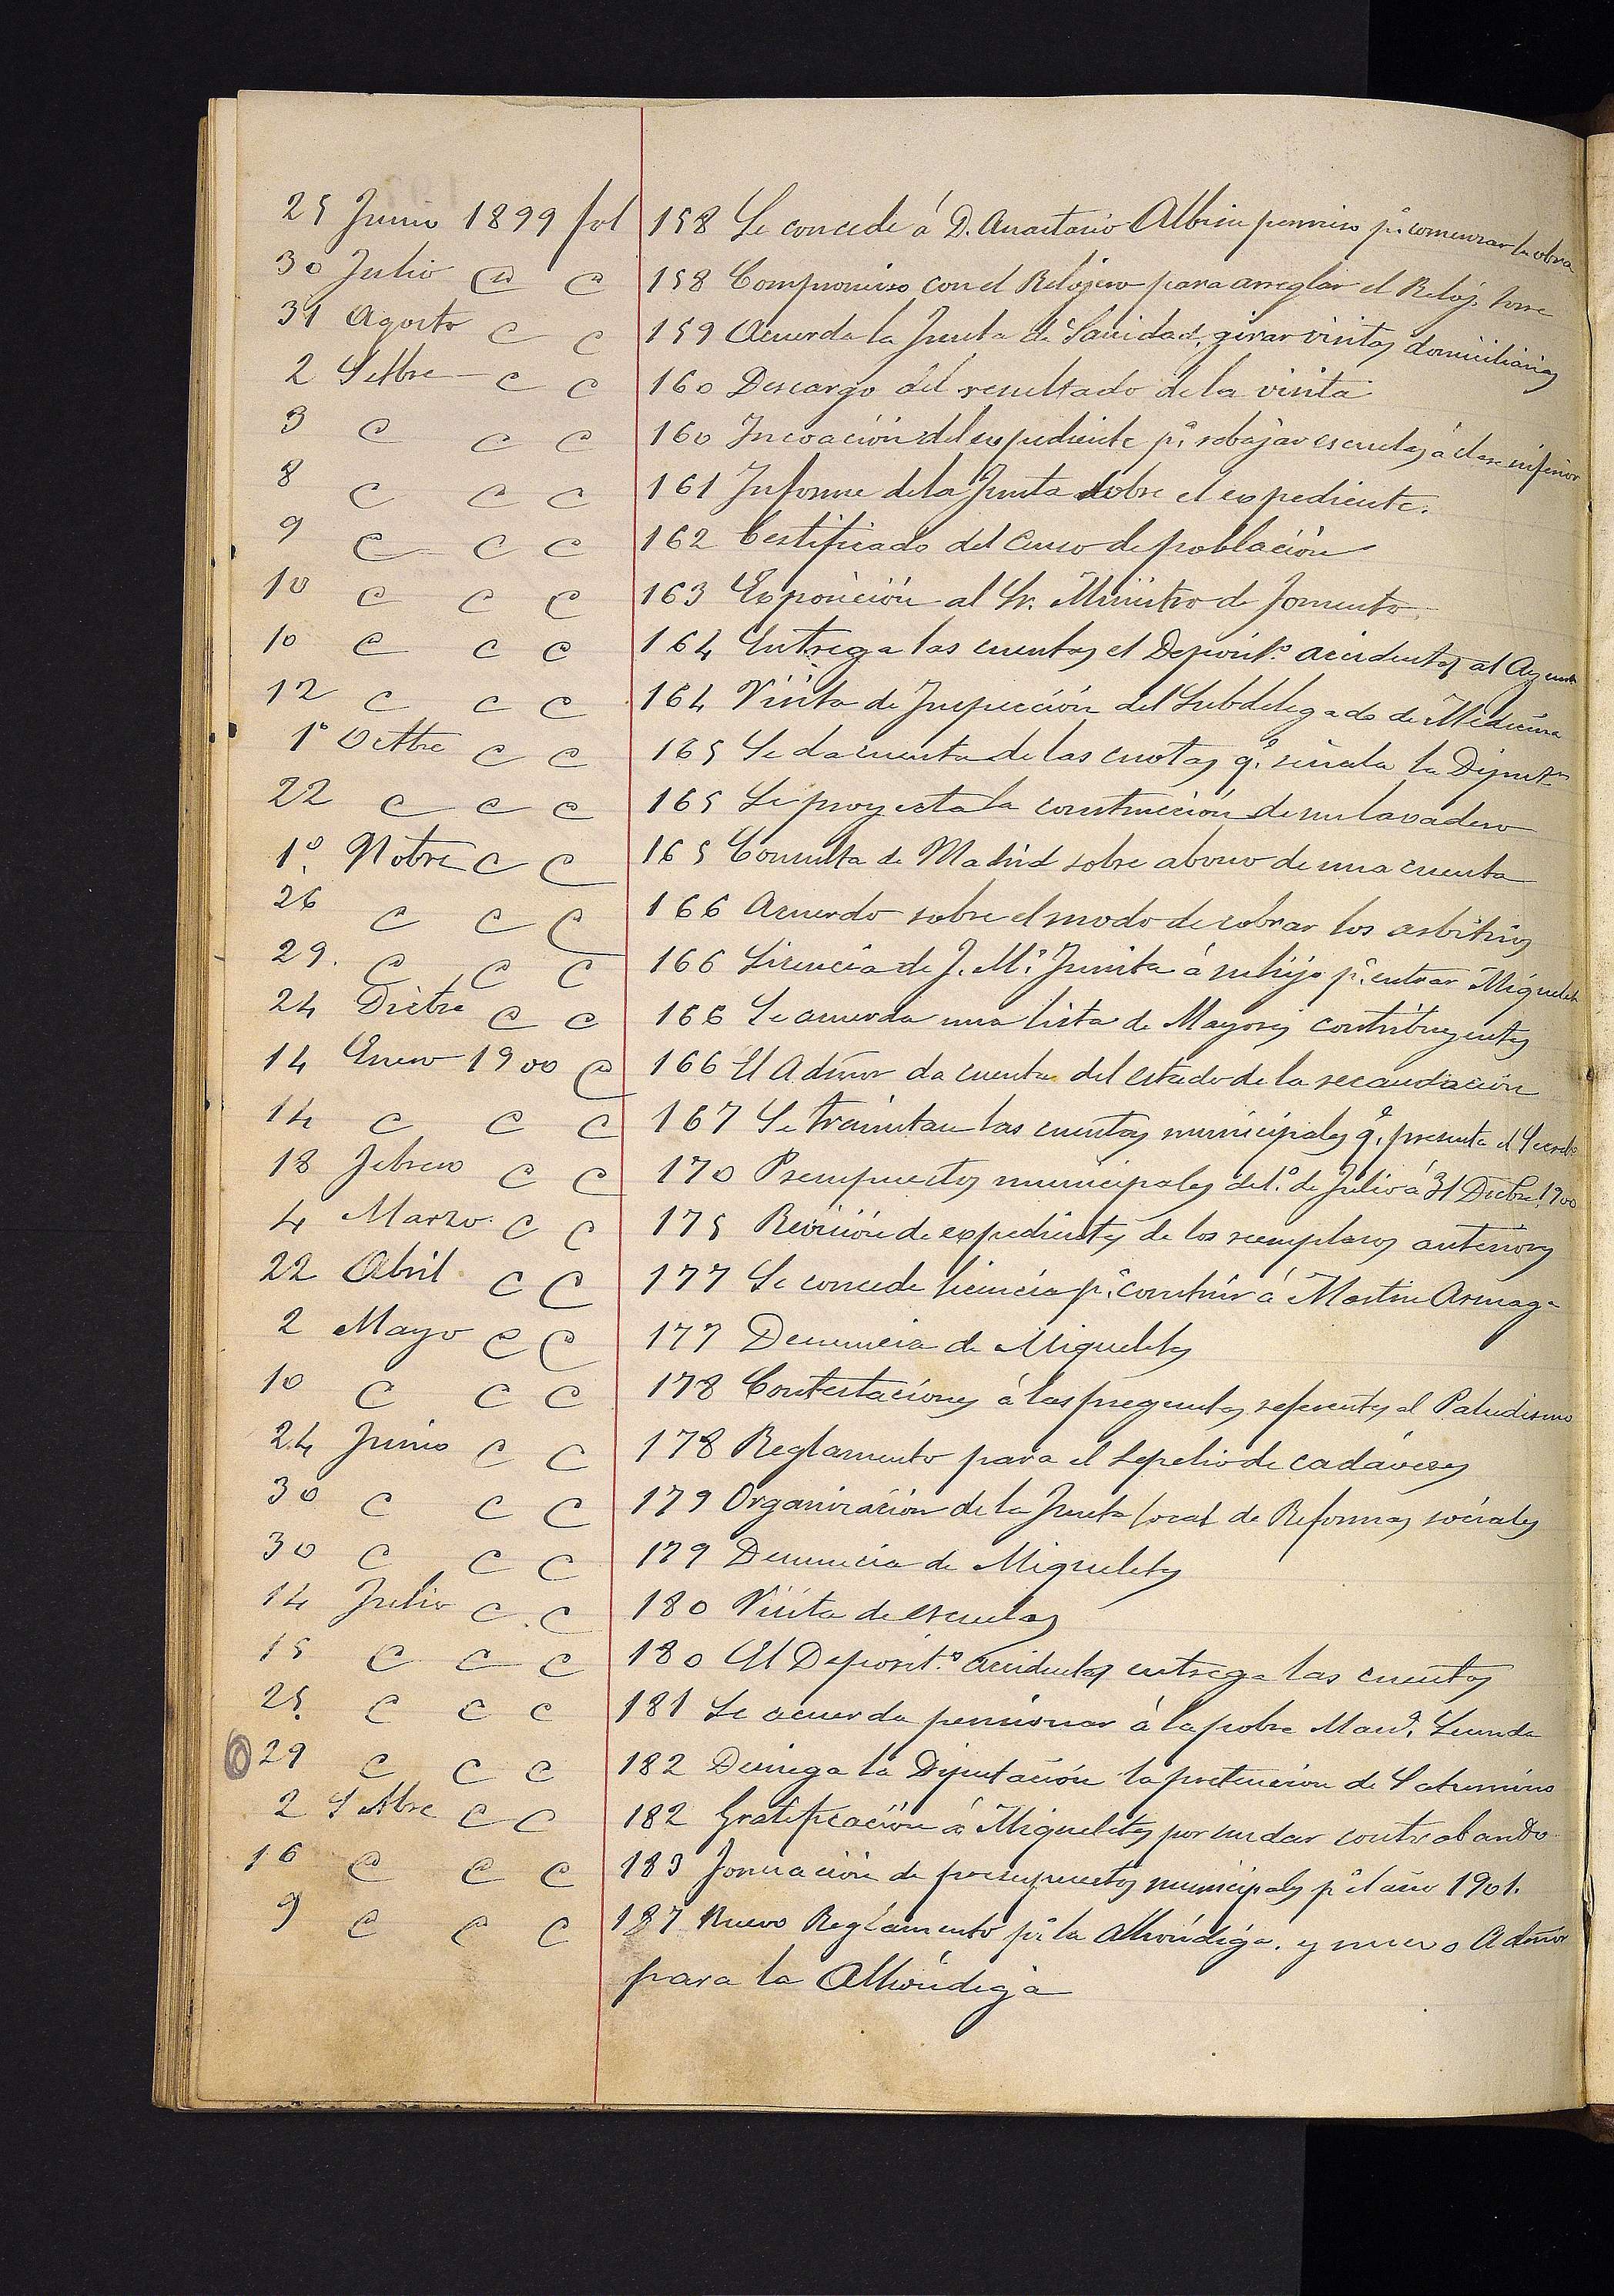 25 Junio 1899 fol 158 Se concede á D. Anastasio Albisu permiso pª comenzar la obra
30 Julio " " 158 Compromiso con el Relojero para arreglar el Reloj torre
31 Agosto " " 159 Acuerda la Junta de Sanidad, girar visitas domiciliarias
2 Setbre " " 160 Descargo del resultado de la visita
3 " " " 160 Incoación del expediente pª rebajar escuelas á clase inferior
8 " " " 161 Informe de la Junta sobre el expediente.
9 " " " 162 Certificado del Censo de población
10 " " " 163 Exposición al Sr. Ministro de Fomento
10 " " " 164 Entrega las cuentas el Deposit.º accidental al Ayunto
12 " " " 164 Visita de Inspección del Subdelegado de Medicina
1º Octbre " " 165 Se da cuenta de las cuotas q.e señala la Diput.on
22 " " " 165 Se proyecta la construcción de un lavadero
1º Nobre " " 165 Consulta de Madrid sobre abono de una cuenta
26 " " " 166 Acuerdo sobre el modo de cobrar los arbitrios
29. " " " 166 Licencia de J. Mª Iunita á su hijo pª entrar Miquelete
24 Dictre " " 166 Se acuerda una lista de Mayores contribuyentes
14 Enero 1900 " 166 El Admor da cuenta del estado de la recaudación
14 " " " 167 Se tramitan las cuentas municipales q.e presenta el Secreto
18 Febrero " " 170 Presupuestos municipales del 1.º de Julio á 31 Dicbre. 1900
4 Marzo " " 175 Revisión de expedientes de los reemplazos anteriores
22 Abril " " 177 Se concede licencia pª construir á Martin Armaga
2 Mayo " " 177 Denuncia de Miqueletes
10 " " " 178 Contestaciones á las preguntas referentes al Paludismo
24 Junio " " 178 Reglamento para el sepelio de cadáveres
30 " " " 179 Organización de la Junta local de Reformas sociales
30 " " " 179 Denuncia de Miqueletes
14 Julio " " 180 Visita de escuelas
15 " " " 180 El Deposit.º accidental entrega las cuentas
25 " " " 181 Se acuerda pensionar á la pobre Manª. Leunda
29 " " " 182 Deniega la Diputación la pretencion de Saturnino
2 Setbre " " 182 Gratificación á Miqueletes por cuidar contrabando
16 " " " 183 Formación de presupuestos municipales pª el año 1901.
9 " " " 187 Nuevo Reglamento pª la Alhóndiga. y nuevo Admor
para la Alhóndiga